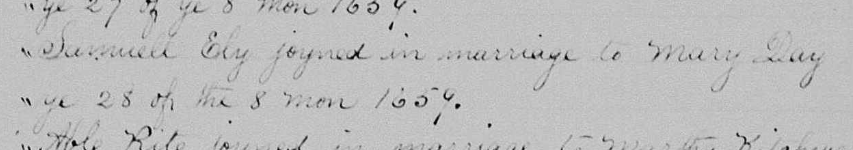 "ye 27 of ye 8 mon 1659.
"Samuell Ely joyned in marriage to Mary Day
"ye 28 of the 8 mon 1659.
"Able Rite joyned in marriage to Martha